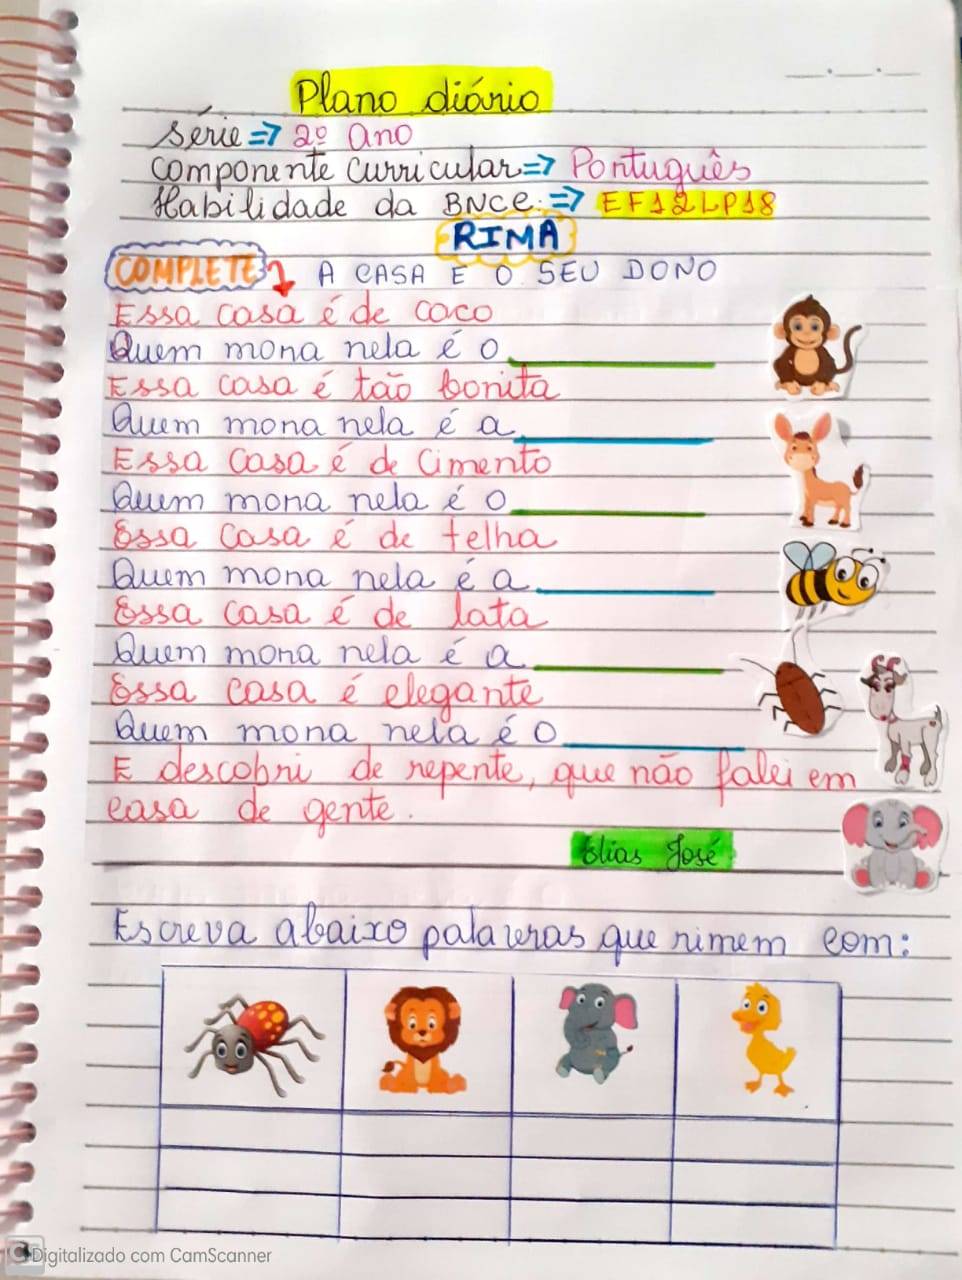 Plano diário
Série => 2º Ano
Componente Curricular => Português
Habilidade da BNCC. => EF12LP18
RIMA
COMPLETE A CASA E O SEU DONO
Essa casa é de coco
Quem mora nela é o
Essa casa é tão bonita
Quem mora nela é a
Essa casa é de cimento
Quem mora nela é o
Essa casa é de telha
Quem mora nela é a
Essa casa é de lata
Quem mora nela é a
Essa casa é elegante
Quem mora nela é o
E descobri de repente, que não falei em
casa de gente.
Elias José
Escreva abaixo palavras que rimem com:
Digitalizado com CamScanner